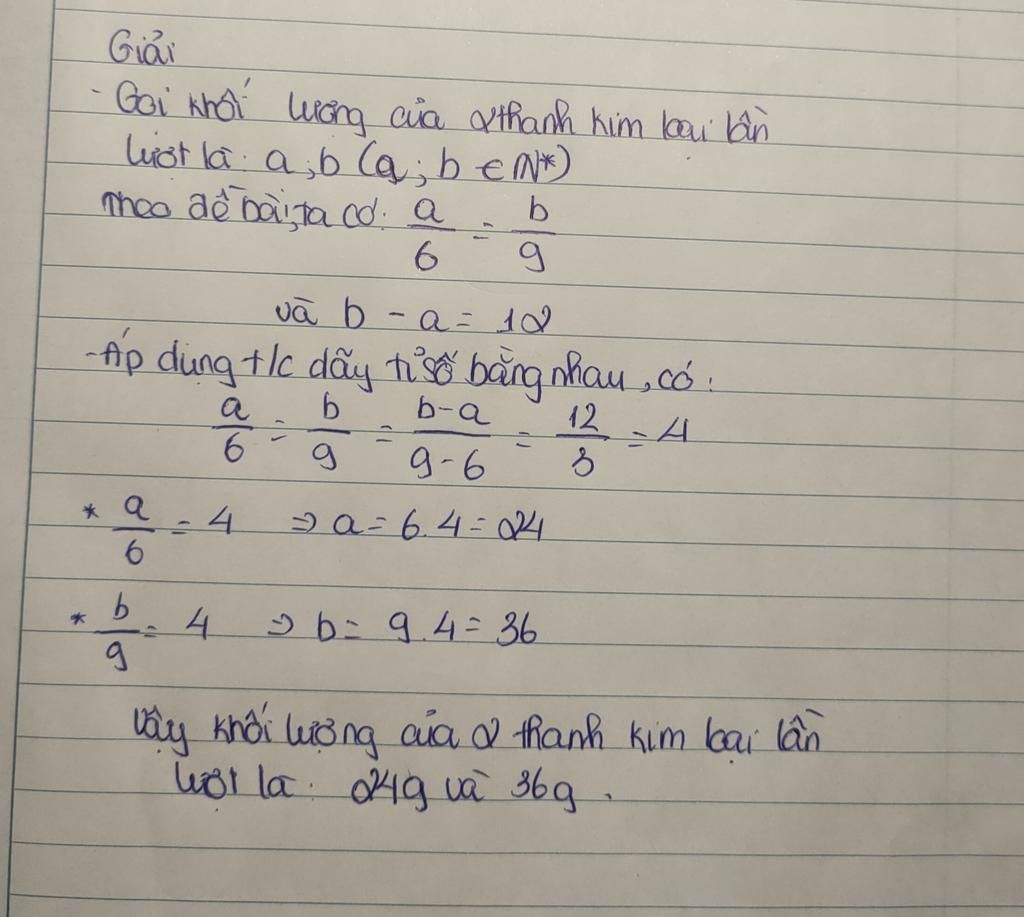 Giải
- Gọi khối lượng của 2 thanh kim loại lần
lượt là: a, b (a; b ∈ N*)
Theo đề bài, ta có: a/6 = b/9
và b - a = 12
- Áp dụng t/c dãy tỉ số bằng nhau, có:
a/6 = b/9 = b-a/9-6 = 12/3 = 4
* a/6 = 4 ⇒ a = 6.4 = 24
* b/9 = 4 ⇒ b = 9.4 = 36
Vậy khối lượng của 2 thanh kim loại lần
lượt là: 24g và 36g.